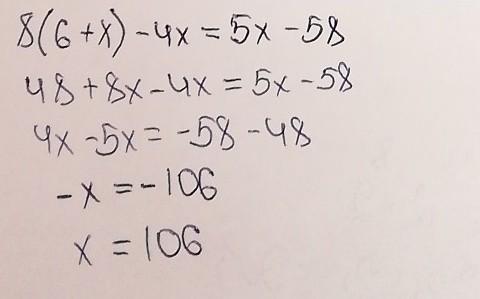 8(6+x)-4x=5x-58
48+8x-4x=5x-58
4x-5x=-58-48
-x=-106
x=106